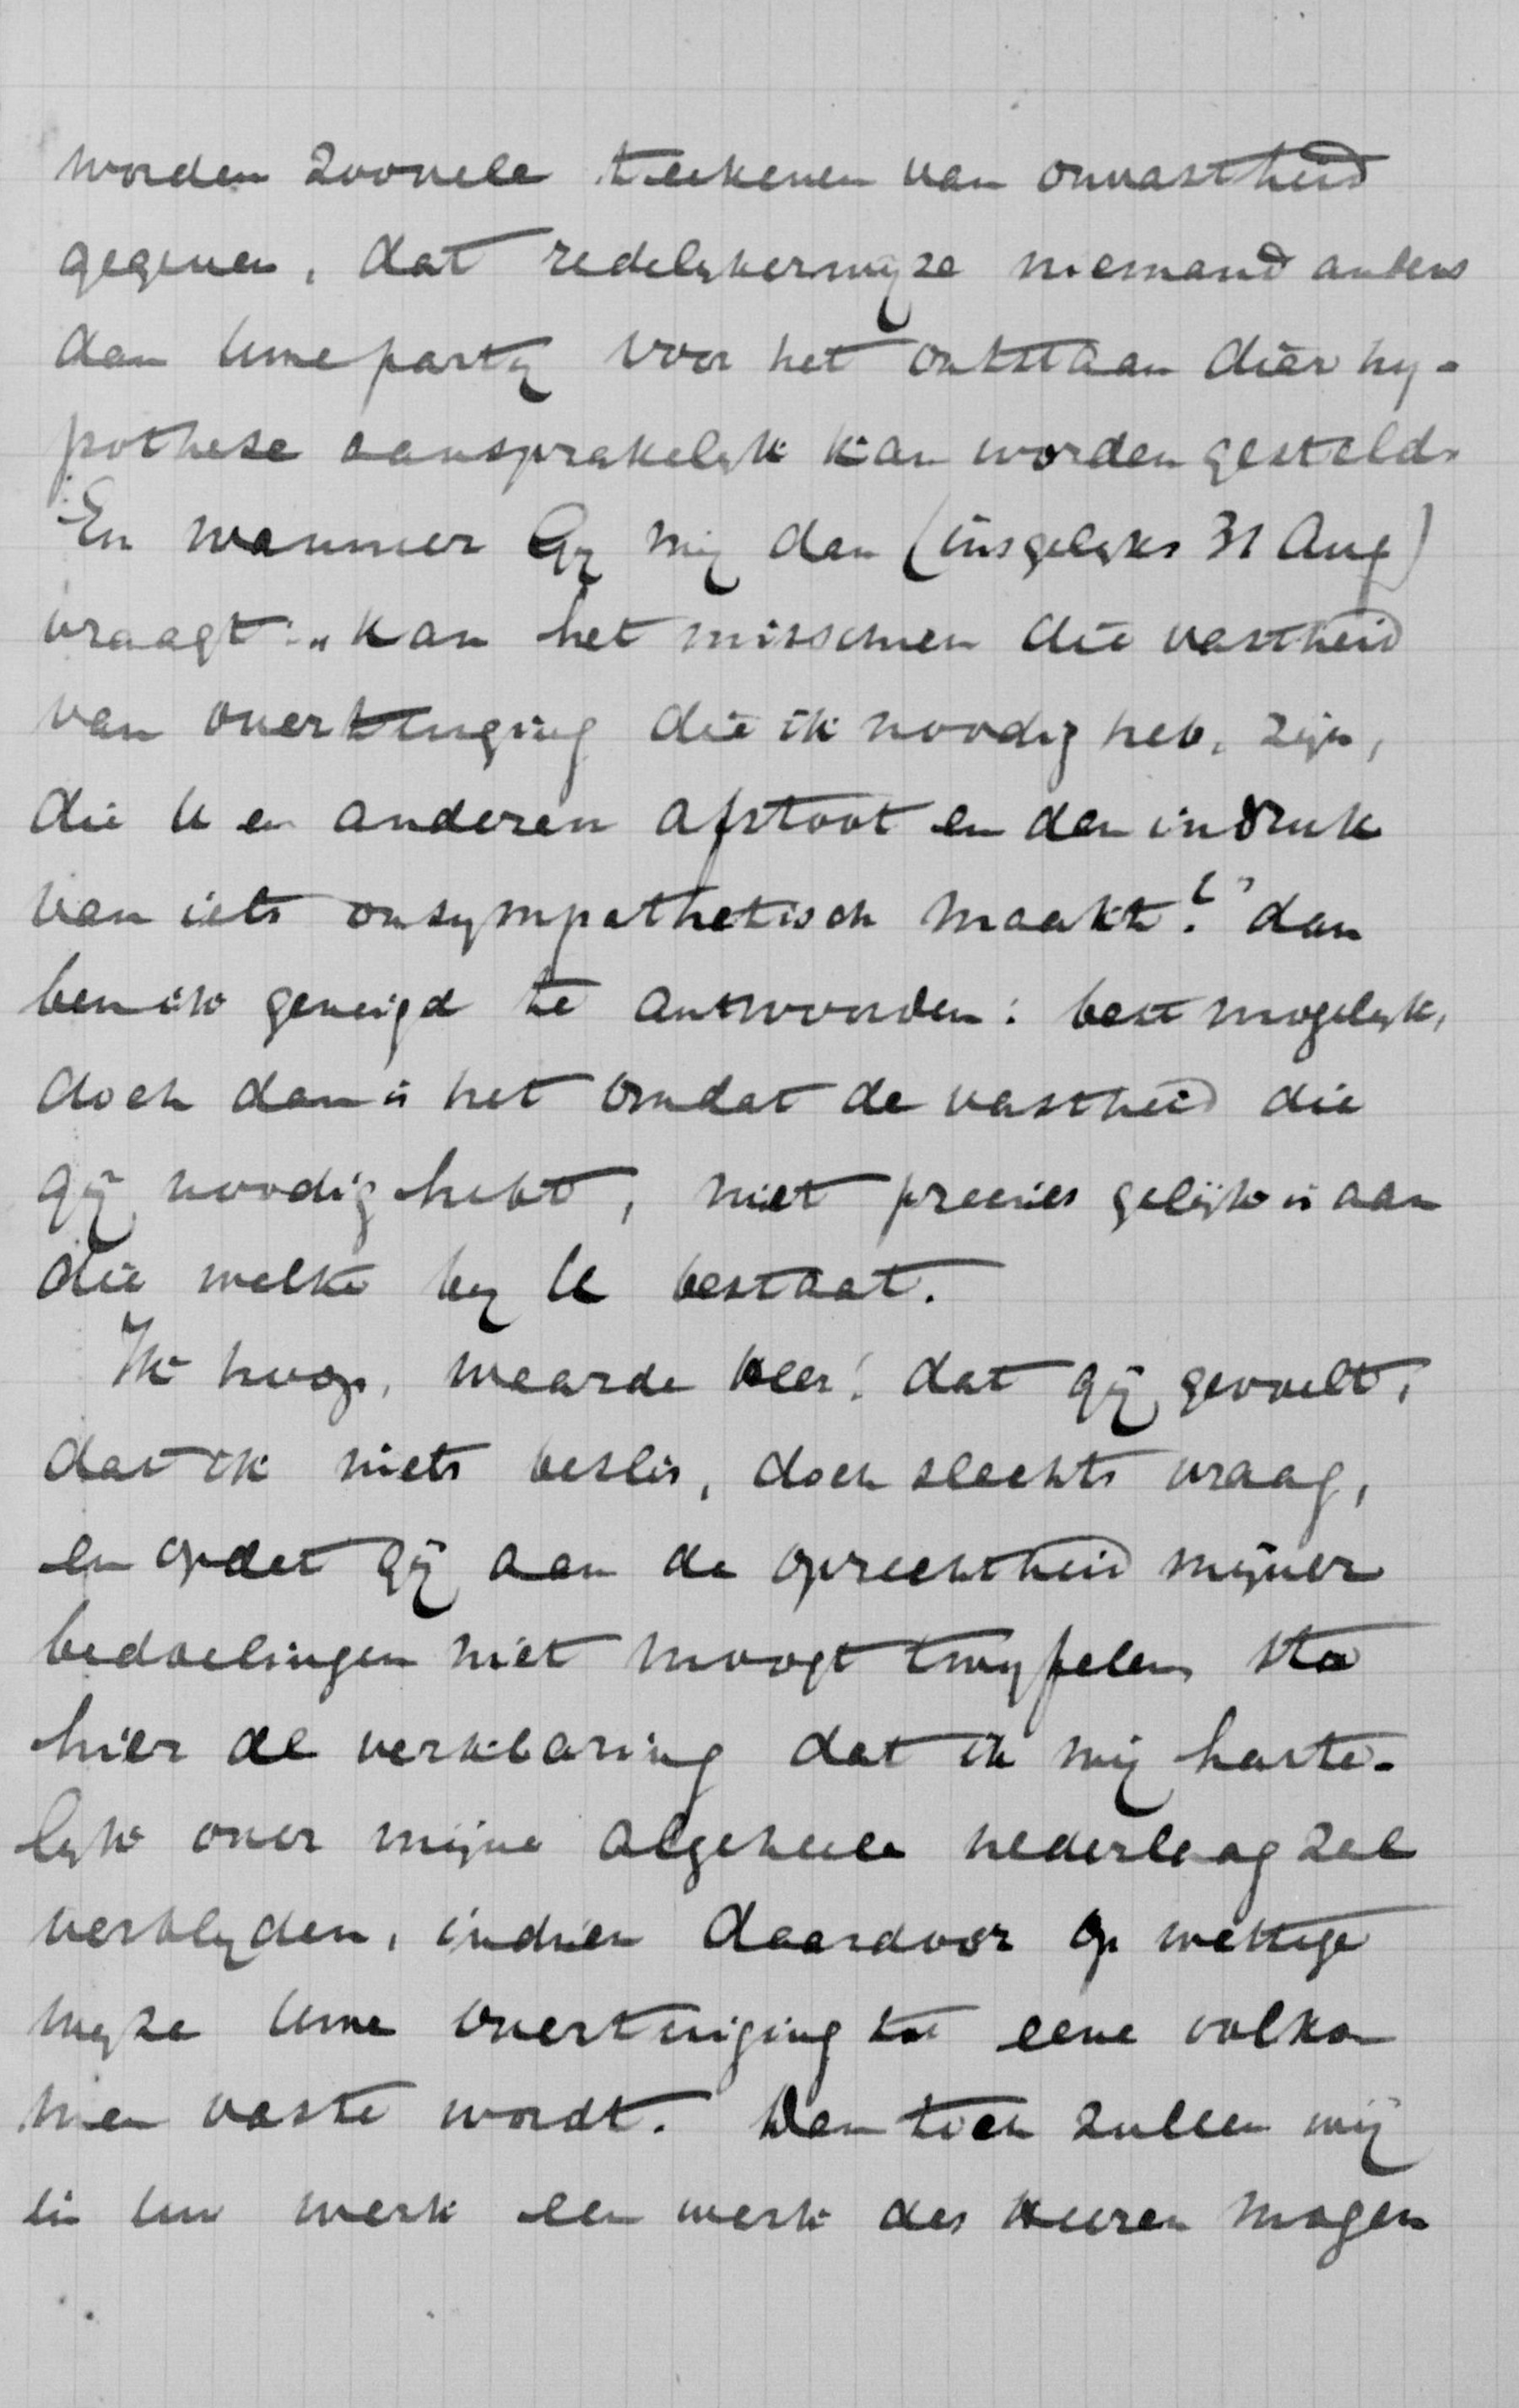 worden zoovele teekenen van onvastheid
gegeven, dat redelijkerwijze niemand anders
dan Uwe partij voor het ontstaan dier hy-
pothese aansprakelijk kan worden gesteld.
En wanneer Gij mij dan (insgelijks 31 Aug)
vraagt: „Kan het misschien die vastheid
van overtuiging die ik noodig heb, zijn,
die U en anderen afstoot en den indruk
van iets onsympathetisch maakt?" dan
ben ik geneigd te antwoorden: best mogelijk,
doch dan is het omdat de vastheid die
gij noodig hebt, niet precies gelijk is aan
die welke bij U bestaat.
Ik hoop, waarde Heer! dat gij gevoelt,
dat ik niets beslis, doch slechts vraag,
en opdat gij aan de oprechtheid mijner
bedoelingen niet moogt twijfelen, sta
hier de verklaring dat ik mij harte-
lijk over mijne algeheele nederlaag zal
verblijden, indien daardoor op wettige
wijze Uwe overtuiging tot eene volko
men vaste wordt. Dan toch zullen wij
in Uw werk een werk des Heeren mogen